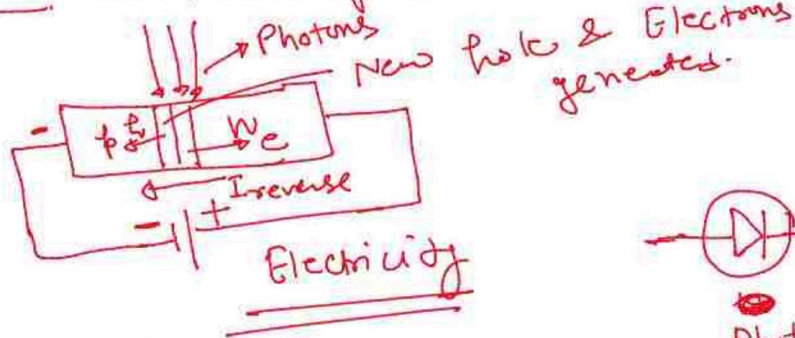 Photons
New hole & Electrons
generated.
-
p
N e
I reverse
- +
Electricity